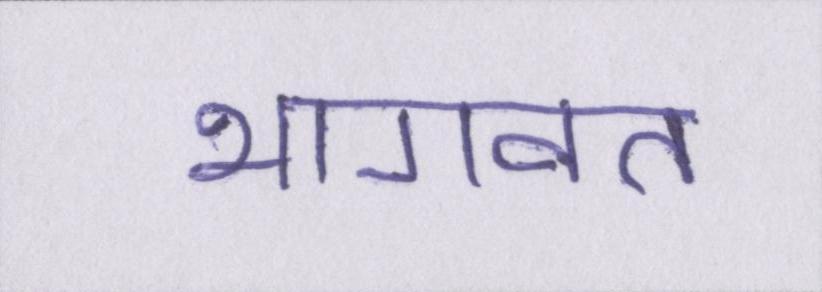 भागवत